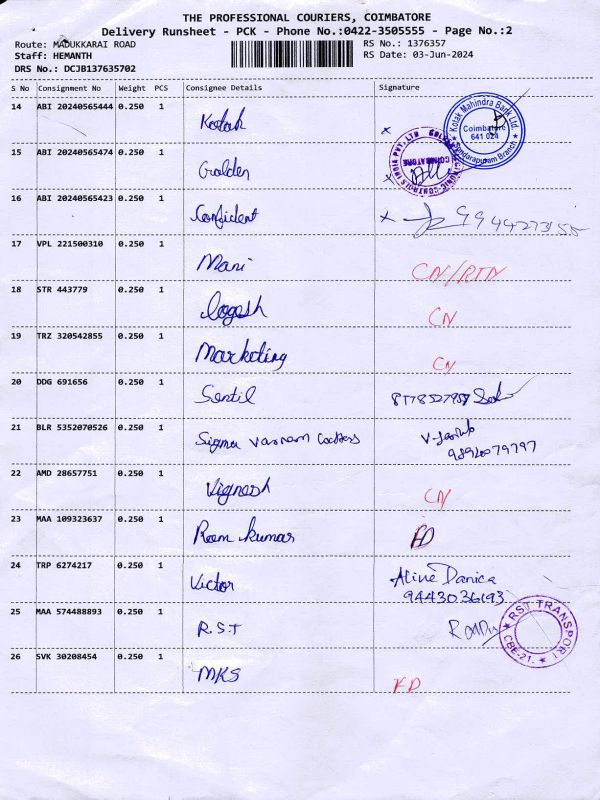 THE PROFESSIONAL COURIERS, COIMBATORE
Delivery Runsheet - PCK - Phone No.:0422-3505555 - Page No.:2
Route: MADUKKARAI ROAD
RS No.: 1376357
Staff: HEMANTH
RS Date: 03-Jun-2024
DRS No.: DCJB137635702
S No Consignment No Weight PCS Consignee Details Signature
14 ABI 20240565444 0.250 1 Kotak x
Kotak Mahindra Bank Ltd.
Coimbatore
641 024
Sundarapuram Branch
15 ABI 20240565474 0.250 1 Golden x
CONTROLS INDIA PVT. LTD
COIMBATORE
16 ABI 20240565423 0.250 1 Confident x
17 VPL 221500310 0.250 1 Mani CN/RTN
18 STR 443779 0.250 1 Logesh CN
19 TRZ 320542855 0.250 1 Marketing CN
20 DDG 691656 0.250 1 Sentil
21 BLR 5352070526 0.250 1 Sigma
22 AMD 28657751 0.250 1 Vignesh CN
23 MAA 109323637 0.250 1 Ram Kumar
24 TRP 6274217 0.250 1 Victor Aline Danica
9443036193
25 MAA 574488893 0.250 1 R.S.T
RST TRANSPORT
CBE-21.
26 SVK 30208454 0.250 1 MKS